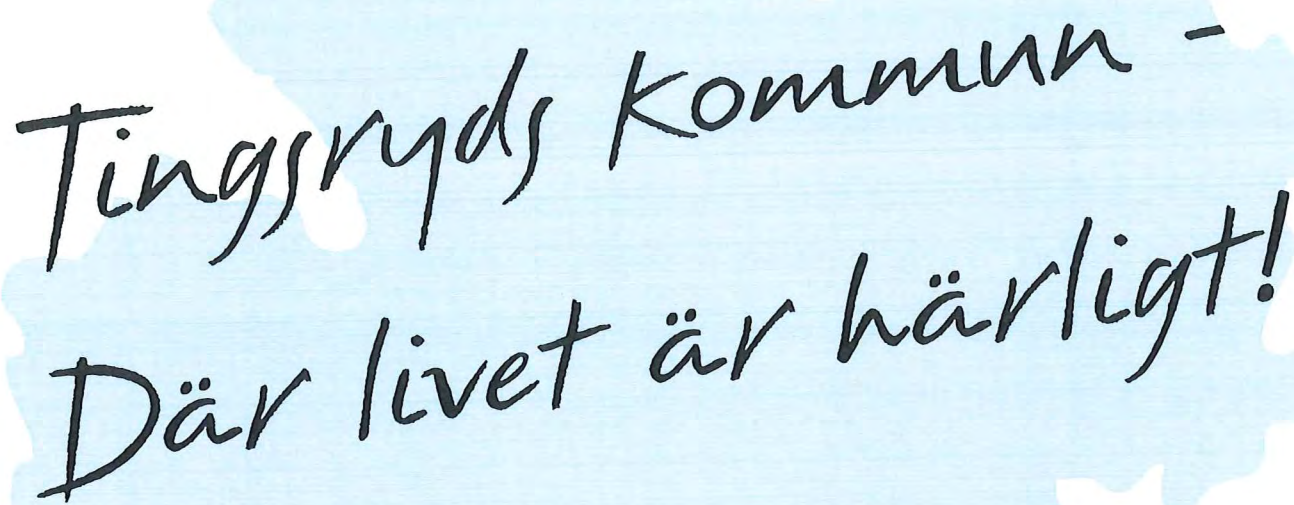 Tingsryds kommun -
Där livet är härligt!